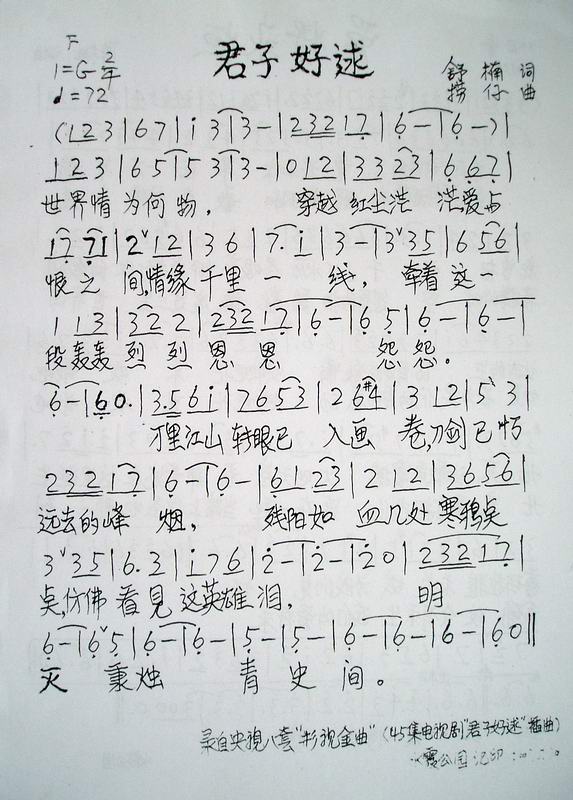 君子好逑
F
1=G 2/4
♩=72
舒楠 词
捞仔 曲
(1 2 3 | 6 7 | i 3 | 3 - | 2 3 2 1 7 | 6 - | 6 -) |
1 2 3 | 6 5 | 5 3 | 3 - | 0 1 2 | 3 3 2 3 | 6 6 7 |
世界情 为何 物, 穿越 红尘浩 茫爱与
1 7 7 1 | 2ˇ 1 2 | 3 6 | 7. i | 3 - | 3ˇ 3 5 | 6 5 6 |
恨之 间,情缘 千里 一 线, 牵着 这一
1 1 3 | 3 2 2 | 2 3 2 1 7 | 6 - | 6 5 | 6 - | 6 - |
段轰轰 烈烈 恩 恩 怨 怨。
6 - | 6 0. | 3.5 6 i | 7 6 5 3 | 2 6 #4 | 3 1 2 | 5ˇ 3 |
万里江山 转眼已 入画 卷,刀剑已朽
2 3 2 1 7 | 6 - | 6 - | 6 1 2 3 | 2 1 2 | 3 6 5 6 |
远去的峰 烟, 残阳如 血几处 寒鸦点
3ˇ 3 5 | 6. 3 | i 7 6 | 2 - | 2 - | 2 0 | 2 3 2 1 7 |
点,仿佛 看見 这英雄 泪, 明
6 - | 6ˇ 5 | 6 - | 6 - | 5 - | 5 - | 6 - | 6 - | 6 - | 6 0 ‖
灭 秉烛 青 史 间。
录自央視八套"影视金曲"(45集电视剧"君子好逑"插曲)
公园